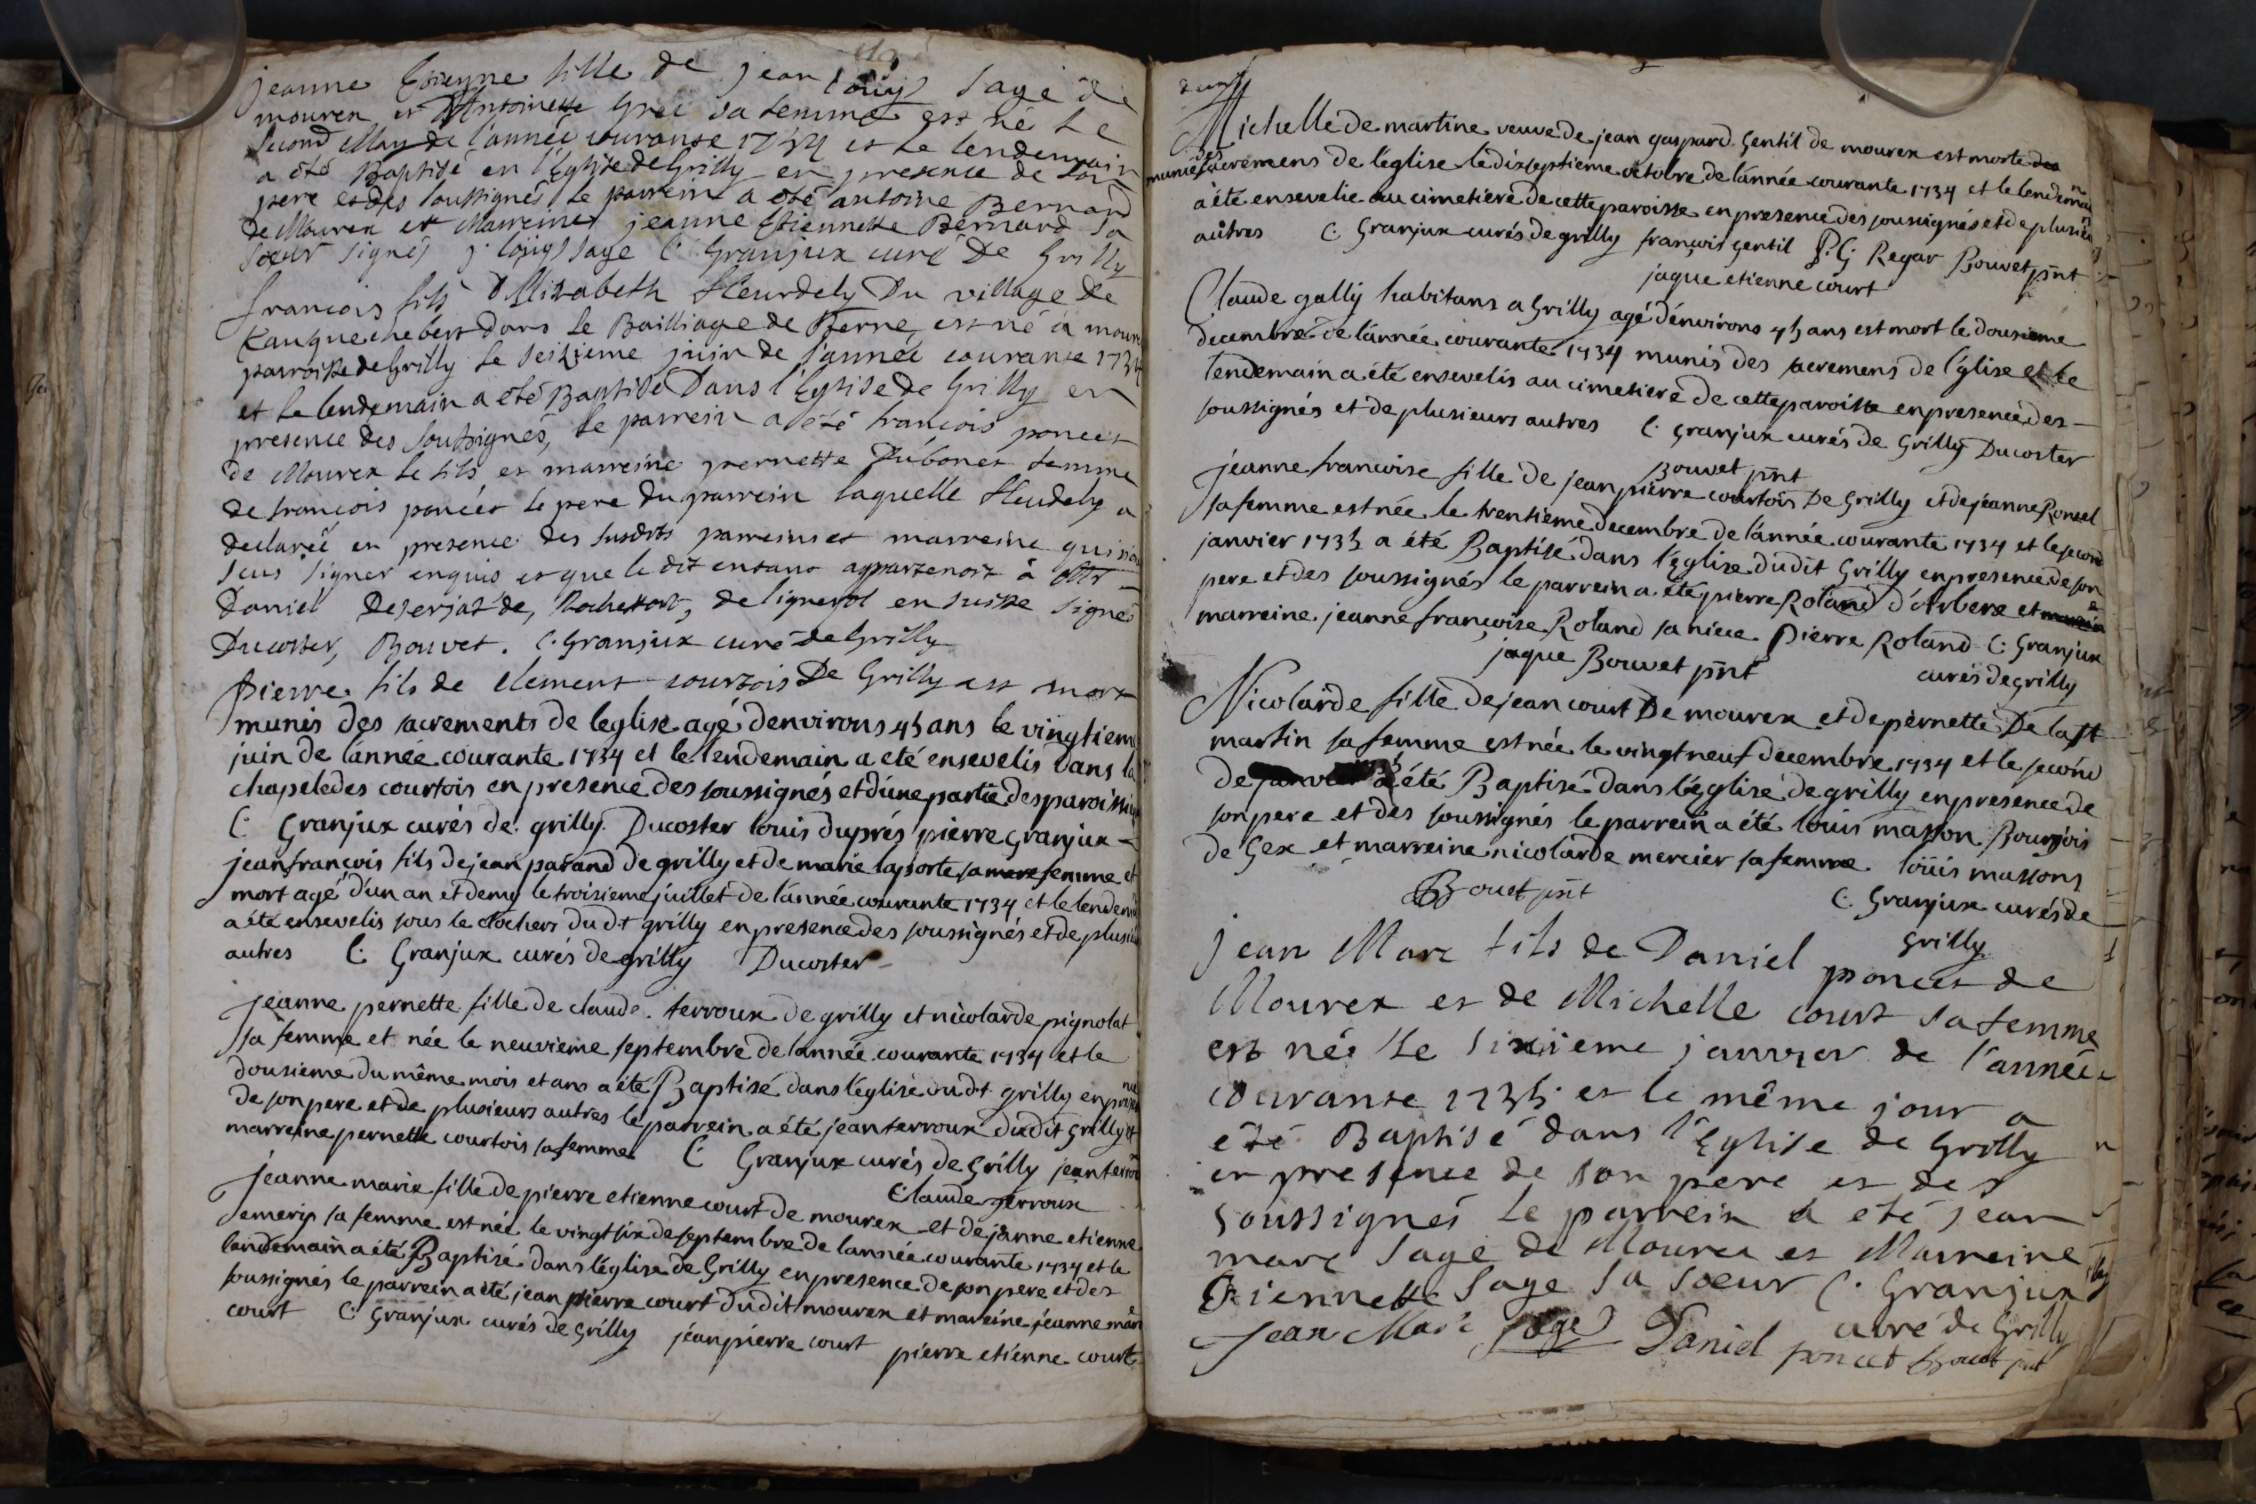 jeanne Etienne fille de jean Louis Sage de
mourex et d'Antoinette sa femme est né le
second May de l'année courante 1734 et le lendemain
a été Baptisé en l'Eglise de Grilly en presence de son
pere et des soussignés le parrein a été antoine Bernard
de Mourex et Marreine jeanne Etiennette Bernard sa
soeur signés j. louys sage C. Granjux curé De Grilly
francois fils d'Elizabeth Heurdely Du village de
dans le Bailliage de Berne, est né à mourex
parroisse de Grilly le seizieme juin de l'année courante 1734
et le lendemain a été Baptisé Dans l'Eglise de Grilly en
presence des soussignés, le parrein a été francois poncet
de Mourex le fils et marreine pernette Dubonet femme
de francois poncet le pere du parrein laquelle Heudely a
declarée en presence des susdits parreins et marreine qui n'on
sceus signer enquis et que le dit enfant appartenoit à
Daniel Deserjat de, Rochefort, de lignerol en suisse signés
Ducoster, Bouvet. C. Granjux curé de Grilly
Pierre fils de clement courtois De Grilly est mort
munis des sacrements de leglise agé denvirons 45 ans le vingtiem
juin de lánnée courante 1734 et le lendemain a eté ensevelis Dans la
chapele des courtois en presence des soussignés et dúne partie des paroissiens
C. Granjux curés de grilly. Ducoster louis duprés pierre Granjux
jean francois fils de jean parand de grilly et de marie laporte sa mere femme et
mort agé d'un an et demy le troisieme juillet de lánnée courante 1734 et le lendem
a été ensevelis sous le clochers dudt grilly en presence des soussignés et de plusieu
autres C. Granjux curés de grilly Ducoster
jeanne pernette fille de claude. terroux de grilly et nicolarde pignolat
sa femme et née le neuvieme septembre de lánnée courante 1734 et le
dousieme du même mois et ans a été Baptisé dans léglise dudt grilly en presen
de son pere et de plusieurs autres le parrein a été jean terroux dudit Grilly et
marreine pernette courtois sa femme C. Granjux curés de Grilly jean terrou
Claude terroux
jeanne marie fille de pierre etienne court de mourex et de jánne etienne
emery sa femme est née le vingt six de septembre de lannée courante 1734 et le
lendemain a été Baptisé dans léglise de Grilly en presence de son pere et des
soussignés le parrein a été jean pierre court dudit mourex et mareine jéanne mari
court C. Granjux curés de Grilly jéan pierre court pierre etienne court
Michelle de martine veuve de jean gaspard Gentil de mourex est morte des
munie des sacremens de léglise le dixseptieme octobre de lánnée courante 1734 et le lendemain
à été ensevelie au cimetiere de cette paroisse en presence des soussignés et de plusieu
aûtres C. Granjux curés de grilly françois gentil P. G. Regar Bouvet pñt
jaque étienne court
Claude gally habitans a Grilly agé dénvirons 45 ans est mort le dousieme
decembre de lánnée courante 1734 munis des sacremens de léglise et le
lendemain a été ensevelis au cimetiere de cette paroisse en presence des
soussignés et de plusieurs autres C. Granjux curés de Grilly Ducoster
Bouvet pñt
jeanne francoise fille de jean pierre courtois De Grilly et de jeanne Roncel
sa femme est née le trentieme decembre de lánnée courante 1734 et le second
janvier 1735 a été Baptisé dans léglise dudit Grilly en presence de son
pere et des soussignés le parrein a été pierre Roland d'Arbere et
marreine jeanne françoise Roland sa niece Pierre Roland C. Granjux
jaque Bouvet pñt curés de grilly
Nicolarde fille de jean court De mourex et de pernette De la st
martin sa femme est née le vingt neuf decembre 1734 et le second
de janvier a été Baptisé dans léglise de grilly en presence de
son pere et des soussignés le parrein a été louis masson Bourjois
de Gex et marreine nicolarde mercier sa femme loüis massons
Bouet pñt C. Granjux curés de
Grilly
jean Marc fils de Daniel poncet de
Mourex et de Michelle court sa femme
est née le sixieme janvier de l'année
courante 1735 et le même jour a
été Baptisé dans l'Eglise de Grilly
en presence de son pere et des
soussignés le parrein a été jean
marc sage de Mourex et Marreine
Etiennette sage sa soeur C. Granjux
curé de Grilly
jean Marc sage Daniel poncet Bouet pñt